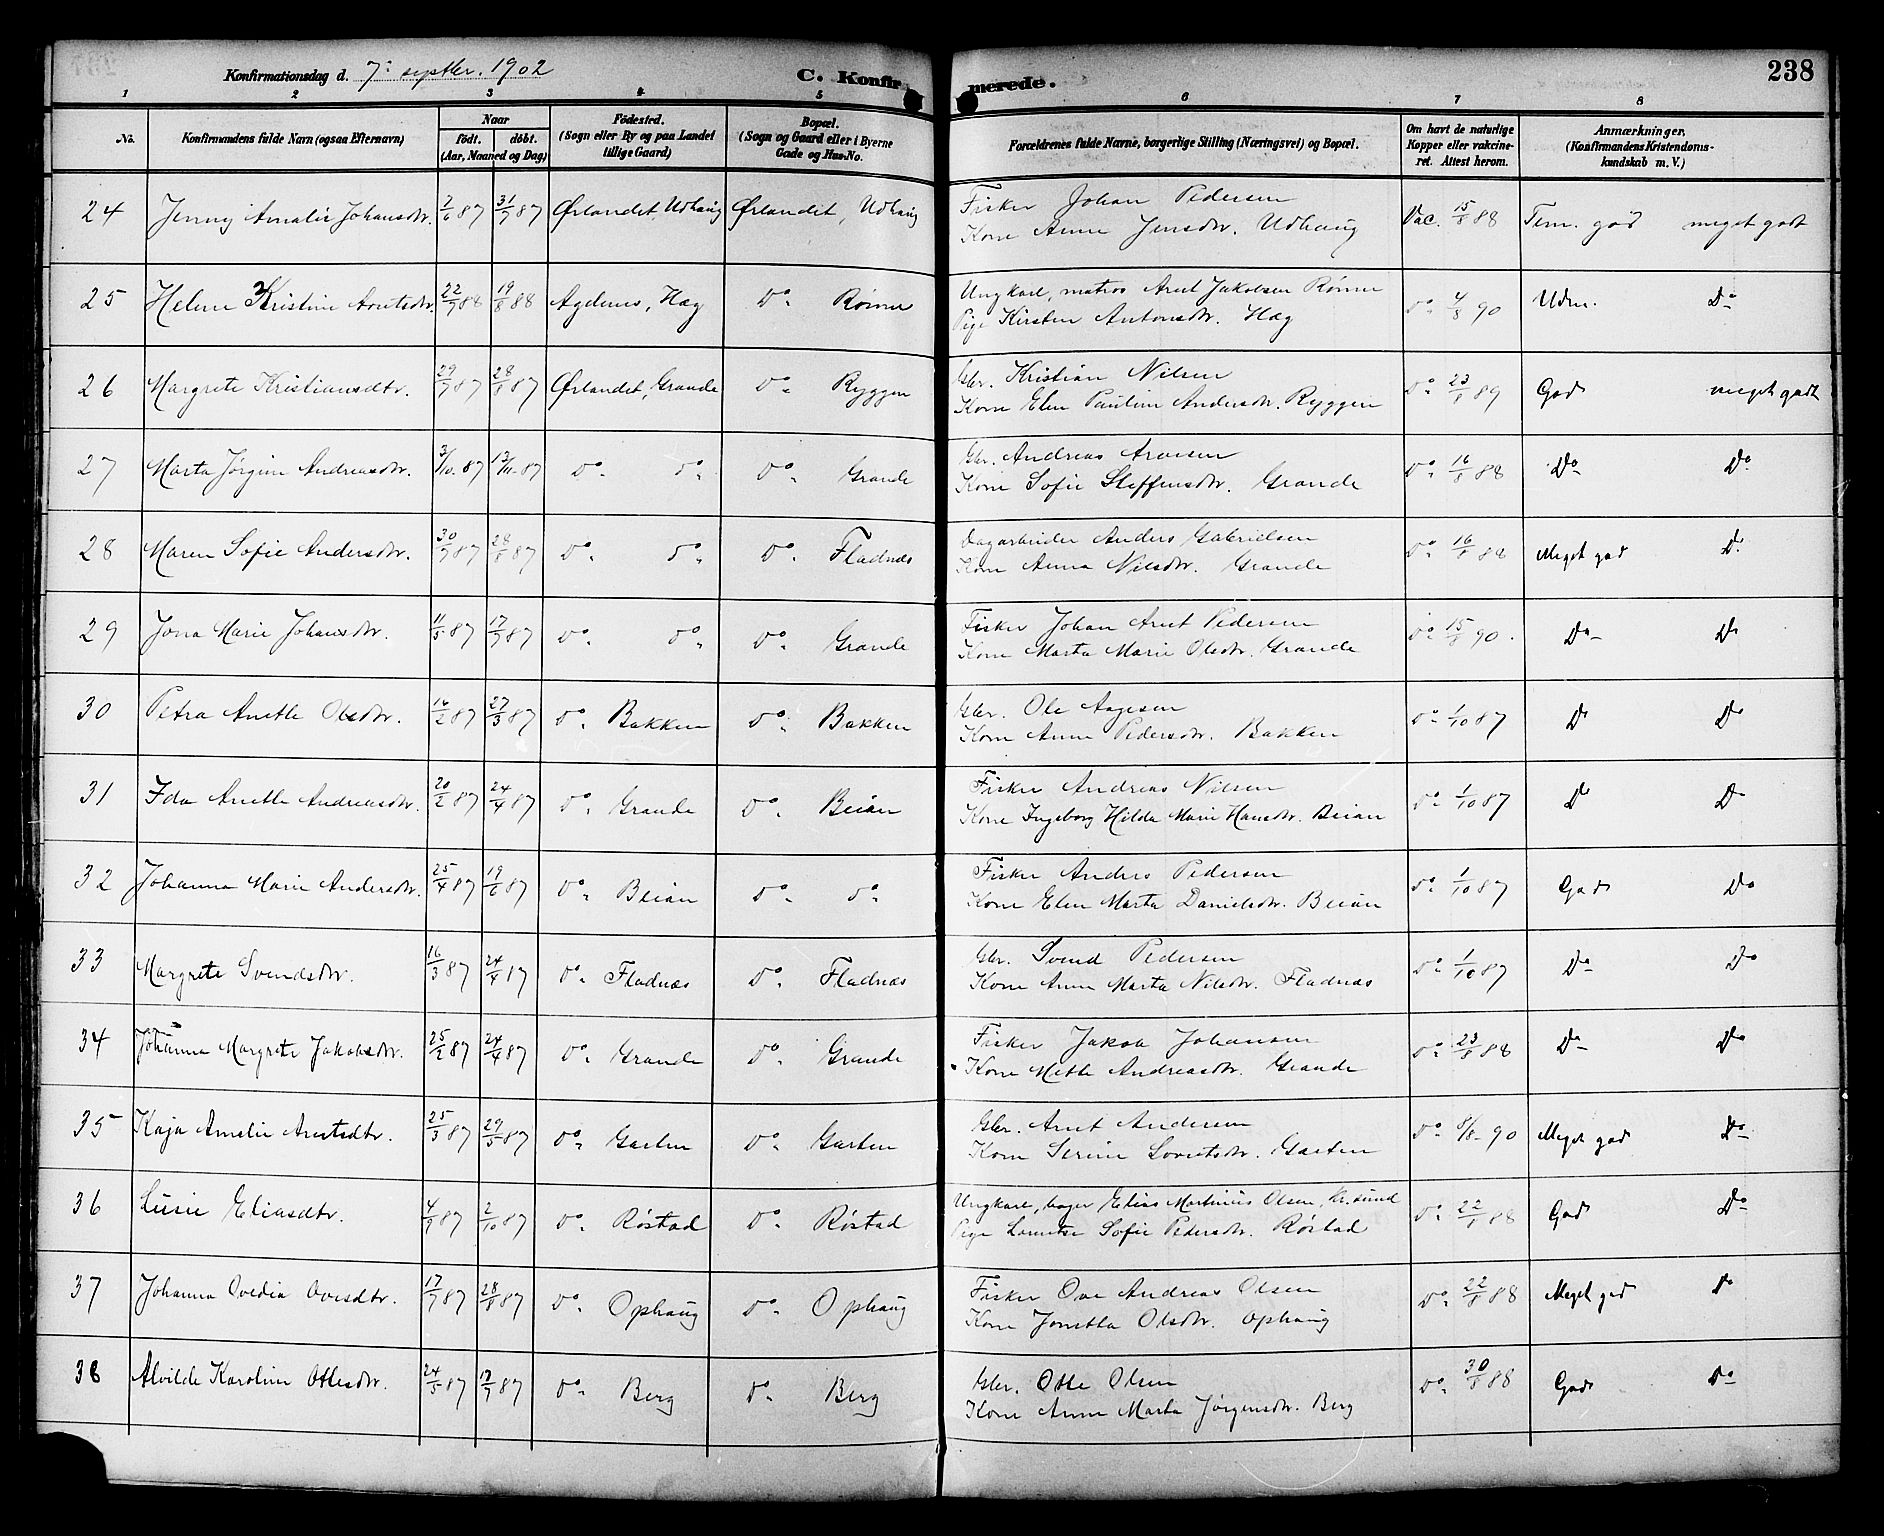 Konfirmationsdag d. 7de septbr. 1902
C. Konfirmerede.
238
1 2 3 4 5 6 7 8
No. Konfirmandens fulde Navn (ogsaa Efternavn) Naar født. døbt. (Aar, Maaned og Dag) Fødested. (Sogn eller By og paa Landet tillige Gaard) Bopæl. (Sogn og Gaard eller i Byerne Gade og Hus-No. Forældrenes fulde Navne, borgerlige Stilling (Næringsvei) og Bopæl. Om havt de naturlige Kopper eller vakcineret. Attest herom. Anmærkninger, (Konfirmandens Kristendomskundskab m. V.)
24 Jenny Amalie Johansdtr. 2/6 87 31/7 87 Ørlandet, Udhaug Ørlandet, Udhaug Fisker Johan Pedersen
Kone Anne Jensdtr. Udhaug Vac. 15/8 88 Tem. god meget godt
25 Helene Kristine Arntsdtr. 22/7 88 19/8 88 Agdenes, Hag Do. Rønne Ungkarl, matros Arnt Jakobsen Rønne
Pige Kirsten Antonsdtr. Hag do. 4/8 90 Udm. Do
26 Margrete Kristiansdtr. 29/7 87 28/8 87 Ørlandet, Grande Do. Ryggen Gbr. Kristian Nilsen
Kone Elen Pauline Andersdtr. Ryggen do. 23/8 89 God meget godt
27 Marta Jørgine Andreasdtr. 3/10 87 13/11 87 Do. do. Do. Grande Gbr. Andreas Arnesen
Kone Sofie Steffensdtr. Grande do. 16/8 88 Do. Do.
28 Maren Sofie Andersdtr. 30/7 87 28/8 87 Do. do. Do. Fladnes Dagarbeider Anders Gabrielsen
Kone Anna Nilsdtr. Grande do. 16/8 88 Meget god Do.
29 Jona Marie Johansdtr. 11/5 87 17/7 87 Do. do. Do. Grande Fisker Johan Arnt Pedersen
Kone Marta Marie Olsdtr. Grande do. 15/8 90. Do. Do
30 Petra Anette Olsdtr. 16/2 87 27/3 87 Do. Bakken Do. Bakken Gbr. Ole Aagesen
Kone Anne Pedersdtr. Bakken do. 1/10 87 Do Do
31 Ida Anette Andreasdtr. 20/2 87 24/4 87 Do. Grande Do. Beian Fisker Andreas Nilsen
Kone Ingeborg Hilda Marie Hansdtr. Beian do. 1/10 87 Do Do
32 Johanna Marie Andersdtr. 25/4 87 19/6 87 Do. Beian do. do. Fisker Anders Pedersen
Kone Elen Marta Danielsdtr. Beian do. 1/10 87 God Do
33 Margrete Svendsdtr. 16/3 87 24/4 87 Do. Fladnæs Do. Fladnæs Gbr. Svend Pedersen
Kone Anne Marta Nilsdtr. Fladnæs do. 1/10 87 Do Do
34 Johanna Margrete Jakobsdtr. 25/2 87 24/4 87 Do. Grande Do. Grande Fisker Jakob Johansen
Kone Mette Andreasdtr. Grande do. 23/8 88 Do. Do
35 Kaja Amalie Arntsdtr. 25/3 87 29/5 87 Do. Garten Do. Garten Gbr. Arnt Andersen
Kone Serine Lorntsdtr. Garten do. 8/8 90 Meget god Do.
36 Lusie Eliasdtr. 4/9 87 2/10 87 Do. Røstad Do. Røstad Ungkarl, bager Elias Martinius Olsen, Kr.sund
Pige Lorntse Sofie Pedersdtr. Røstad do. 22/8 88 God Do.
37 Johanna Ovedia Ovesdtr. 17/7 87 28/8 87 Do. Ophaug Do. Ophaug Fisker Ove Andreas Olsen
Kone Jonetta Olsdtr. Ophaug do. 22/8 88 Meget god Do
38 Alvilde Karoline Ottesdtr. 24/5 87 17/7 87 Do. Berg Do. Berg Gbr. Otte Olsen
Kone Anne Marta Jørgensdtr. Berg do. 30/8 88 God Do